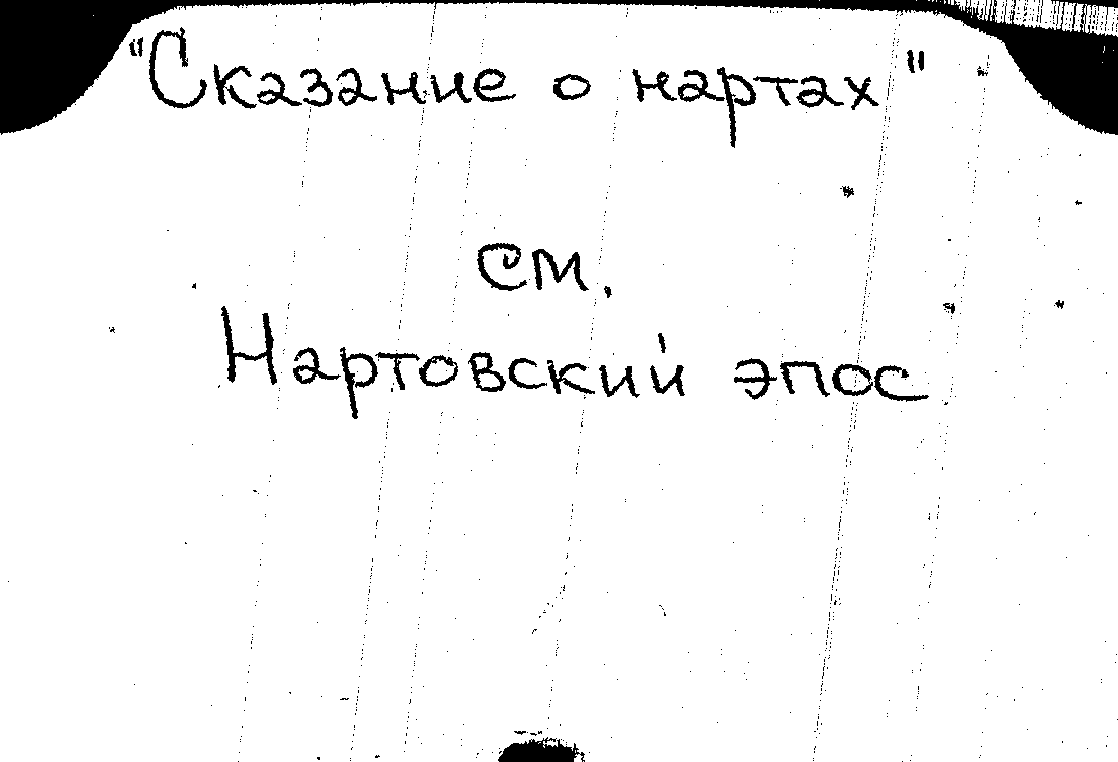 "Сказание о нартах"
см.
Нартовский эпос